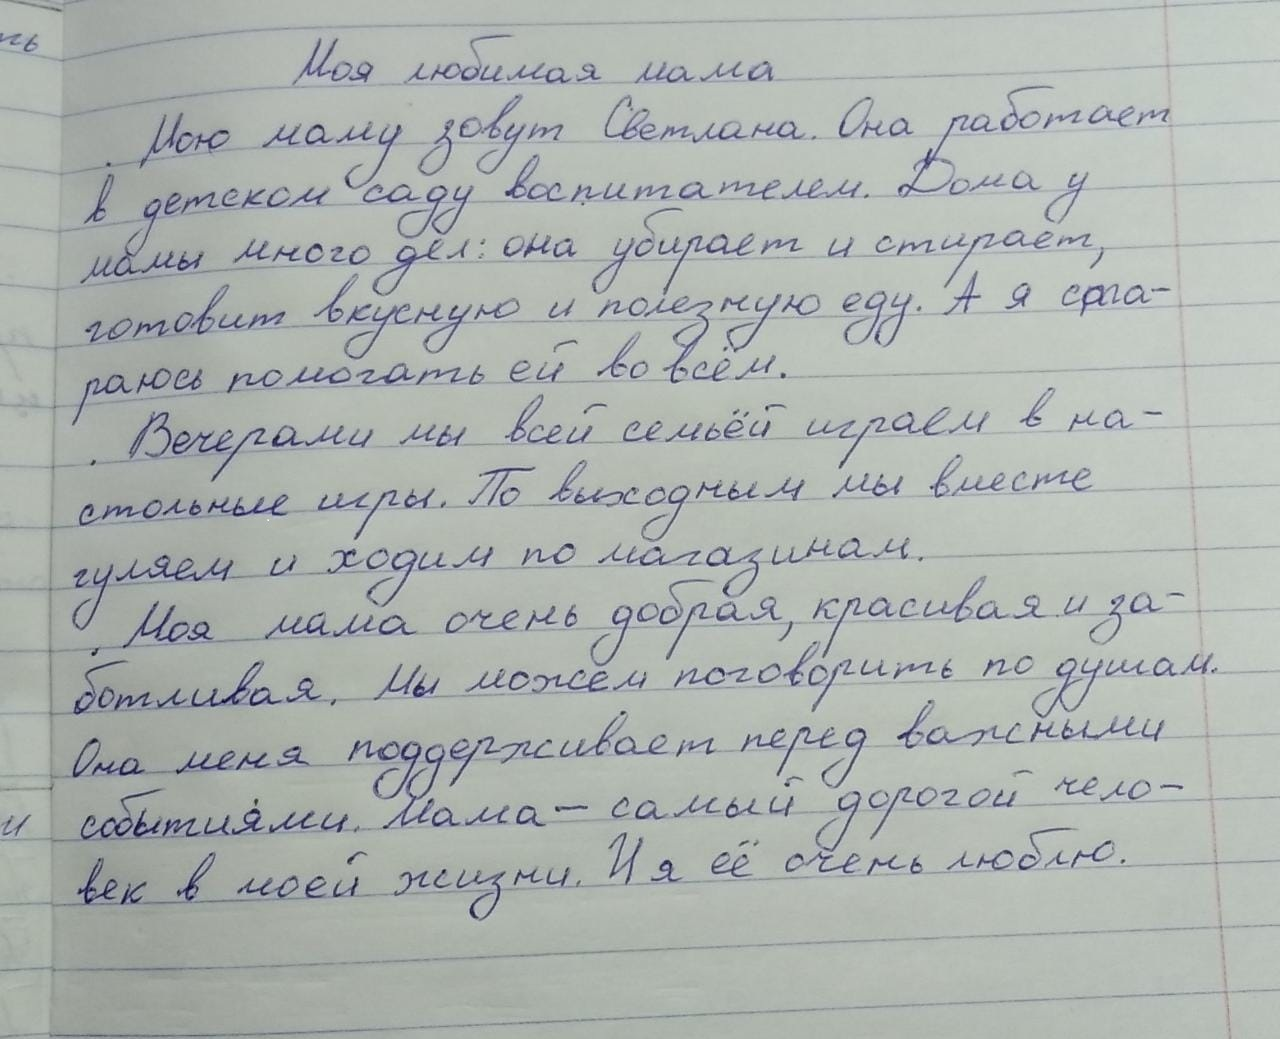 ть
Моя любимая мама
Мою маму зовут Светлана. Она работает
в детском саду воспитателем. Дома у
мамы много дел: она убирает и стирает,
готовит вкусную и полезную еду. А я ста-
раюсь помогать ей во всём.
Вечерами мы всей семьёй играем в на-
стольные игры. По выходным мы вместе
гуляем и ходим по магазинам.
Моя мама очень добрая, красивая и за-
ботливая. Мы можем поговорить по душам.
Она меня поддерживает перед важными
и
событиями. Мама – самый дорогой чело-
век в моей жизни. И я её очень люблю.